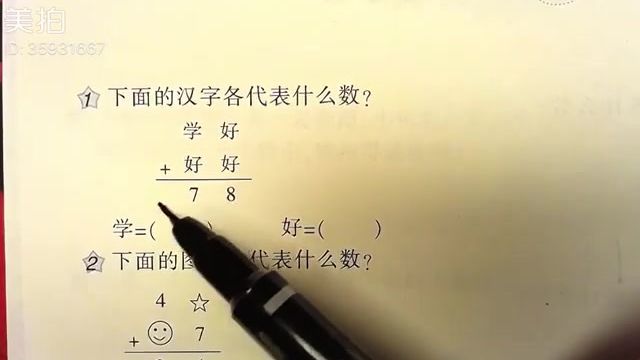 美拍
ID: 35931667
1 下面的汉字各代表什么数?
学 好
+ 好 好
7 8
学=( ) 好=( )
2 下面的图 代表什么数?
4 ☆
+ 7